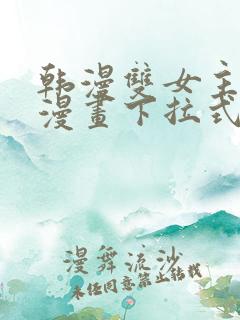 韩漫雙女主
漫畫下拉式
漫舞流沙
未经同意禁止转载